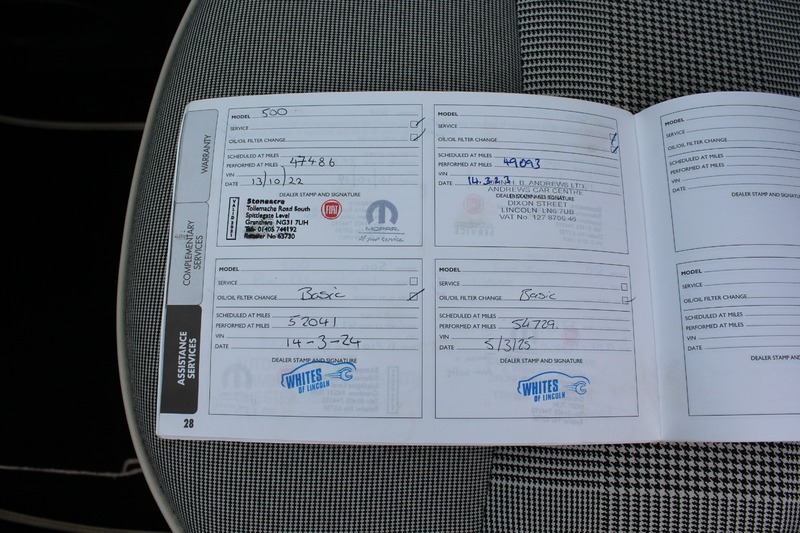 WARRANTY
COMPLEMENTARY SERVICES
ASSISTANCE SERVICES
28
MODEL 500
SERVICE
OIL/OIL FILTER CHANGE
SCHEDULED AT MILES
PERFORMED AT MILES 47486
VIN
DATE 13/10/22
DEALER STAMP AND SIGNATURE
Stoneacre
Tollemache Road South
Spittlegate Level
Grantham NG31 7UH
FIAT
MOPAR
At your service
MODEL
SERVICE
OIL/OIL FILTER CHANGE
SCHEDULED AT MILES
PERFORMED AT MILES 49093
VIN
DATE 14.3.23
B. ANDREWS LTD.
ANDREWS CAR CENTRE
DEALER STAMP AND SIGNATURE
DIXON STREET
LINCOLN LN6 7UB
VAT No. 127 8706 46
MODEL
SERVICE
OIL/OIL FILTER CHANGE Basic
SCHEDULED AT MILES
PERFORMED AT MILES 52041
VIN
DATE 14-3-24
DEALER STAMP AND SIGNATURE
WHITES
OF LINCOLN
MODEL
SERVICE
OIL/OIL FILTER CHANGE Basic
SCHEDULED AT MILES
PERFORMED AT MILES 54729
VIN
DATE 5/3/25
DEALER STAMP AND SIGNATURE
WHITES
OF LINCOLN
MODEL
SERVICE
OIL/OIL FILTER CHANGE
SCHEDULED AT MILES
PERFORMED AT MILES
VIN
DATE
DEALER STAM
MODEL
SERVICE
OIL/OIL FILTER CHANGE
SCHEDULED AT MILES
PERFORMED AT MILES
VIN
DATE
DEALER STAMP AND